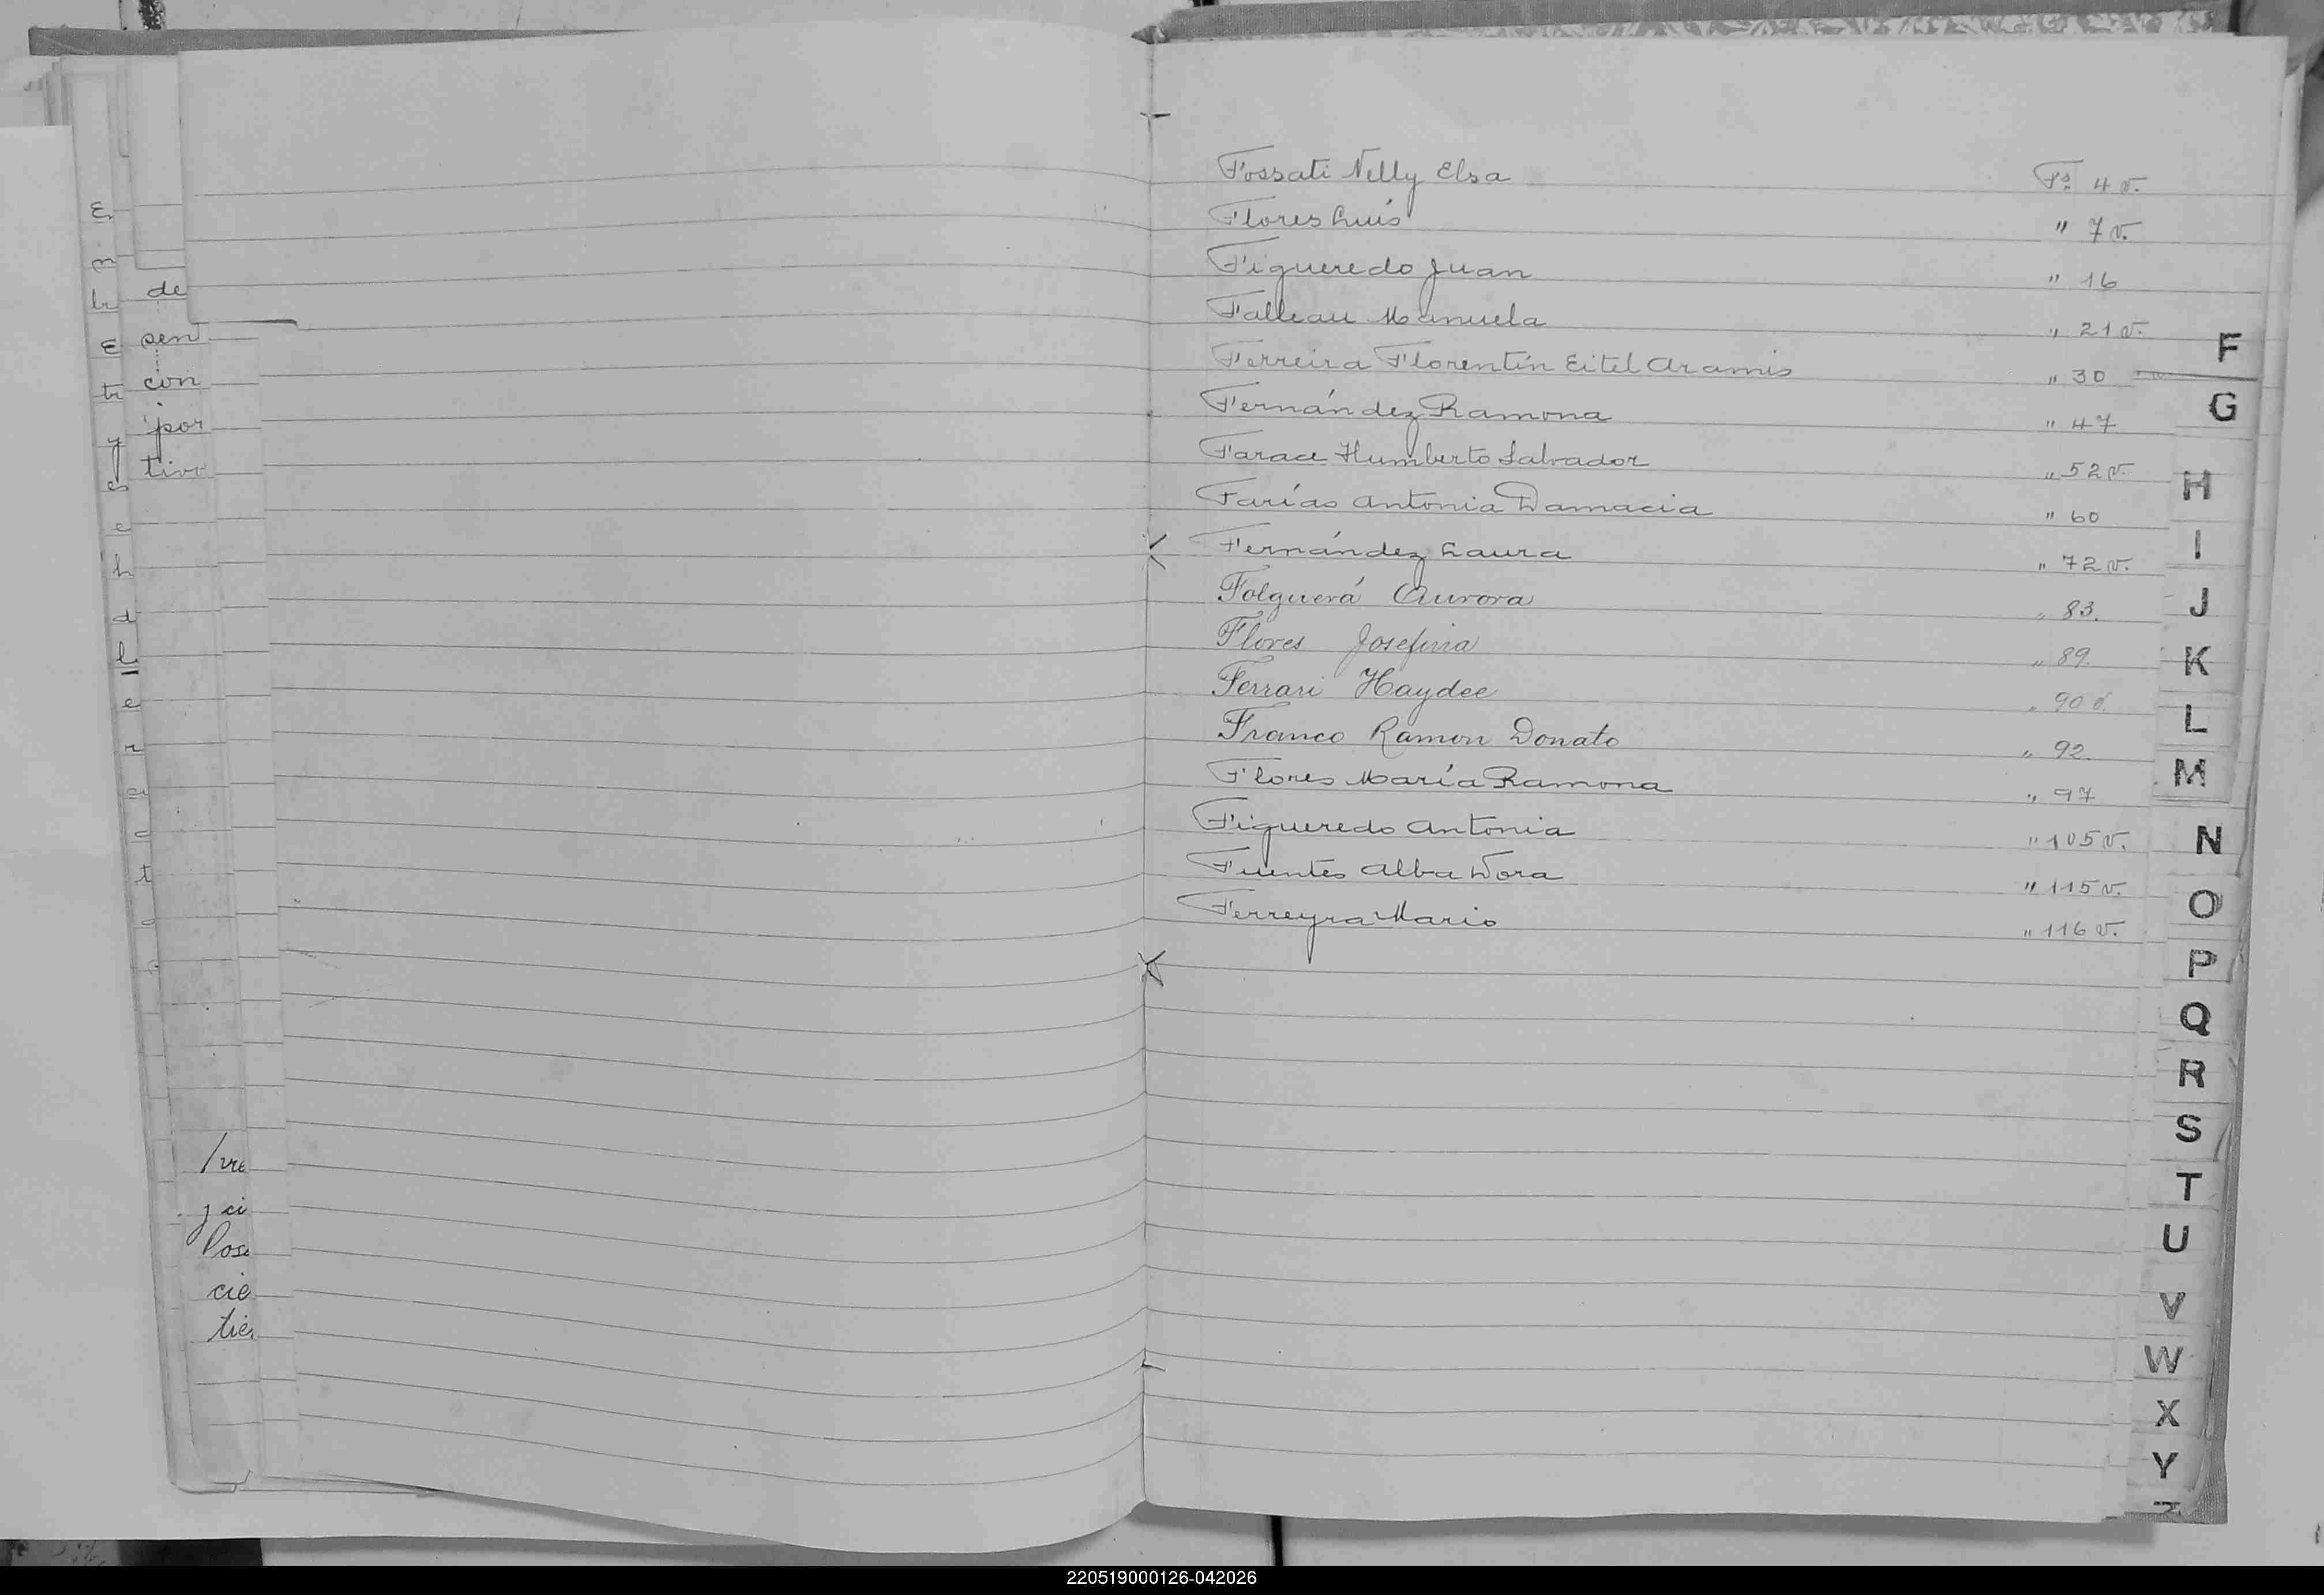 de
sen
con
por
Fossati Nelly Elsa Fs 4 v.
Flores Luis " 7 v.
Figueredo Juan " 16
Falleau Manuela " 21 v.
Ferreira Florentín Eitel Aramis " 30
Fernández Ramona " 47
Farace Humberto Salvador " 52 v.
Farías Antonia Damacia " 60
Fernández Laura " 72 v.
Folguerá Aurora " 83.
Flores Josefina " 89.
Ferrari Haydee " 90 v.
Franco Ramon Donato " 92.
Flores María Ramona " 97
Figueredo Antonia " 105 v.
Fuentes Alba Dora " 115 v.
Ferreyra Mario " 116 v.
F
G
H
I
J
K
L
M
N
O
P
Q
R
S
T
U
V
W
X
Y
Z
cie
tie
220519000126-042026